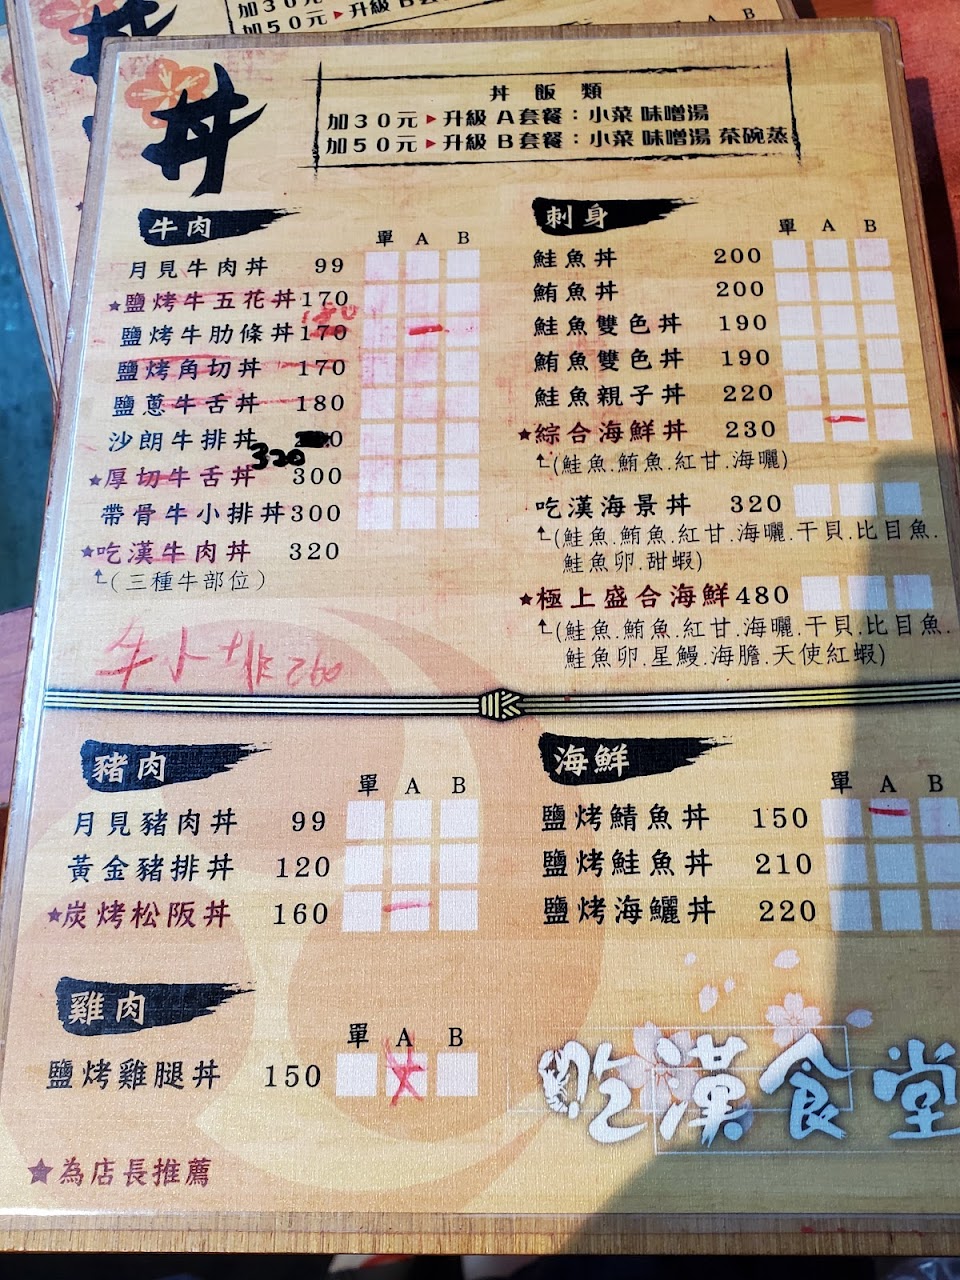 加30元
加50元▶升級 B套
A B
丼
丼飯類
加30元▶升級 A套餐：小菜 味噌湯
加50元▶升級 B套餐：小菜 味噌湯 茶碗蒸
牛肉
單 A B
月見牛肉丼 99
★鹽烤牛五花丼 170
180
鹽烤牛肋條丼 170
鹽烤角切丼 170
鹽蔥牛舌丼 180
沙朗牛排丼 0
320
★厚切牛舌丼 300
帶骨牛小排丼 300
★吃漢牛肉丼 320
(三種牛部位)
牛小排260
刺身
單 A B
鮭魚丼 200
鮪魚丼 200
鮭魚雙色丼 190
鮪魚雙色丼 190
鮭魚親子丼 220
★綜合海鮮丼 230
(鮭魚.鮪魚.紅甘.海曬)
吃漢海景丼 320
(鮭魚.鮪魚.紅甘.海曬.干貝.比目魚.
鮭魚卵.甜蝦)
★極上盛合海鮮 480
(鮭魚.鮪魚.紅甘.海曬.干貝.比目魚.
鮭魚卵.星鰻.海膽.天使紅蝦)
豬肉
單 A B
月見豬肉丼 99
黃金豬排丼 120
★炭烤松阪丼 160
海鮮
單 A B
鹽烤鯖魚丼 150
鹽烤鮭魚丼 210
鹽烤海鱺丼 220
雞肉
單 A B
鹽烤雞腿丼 150
★為店長推薦
吃漢食堂